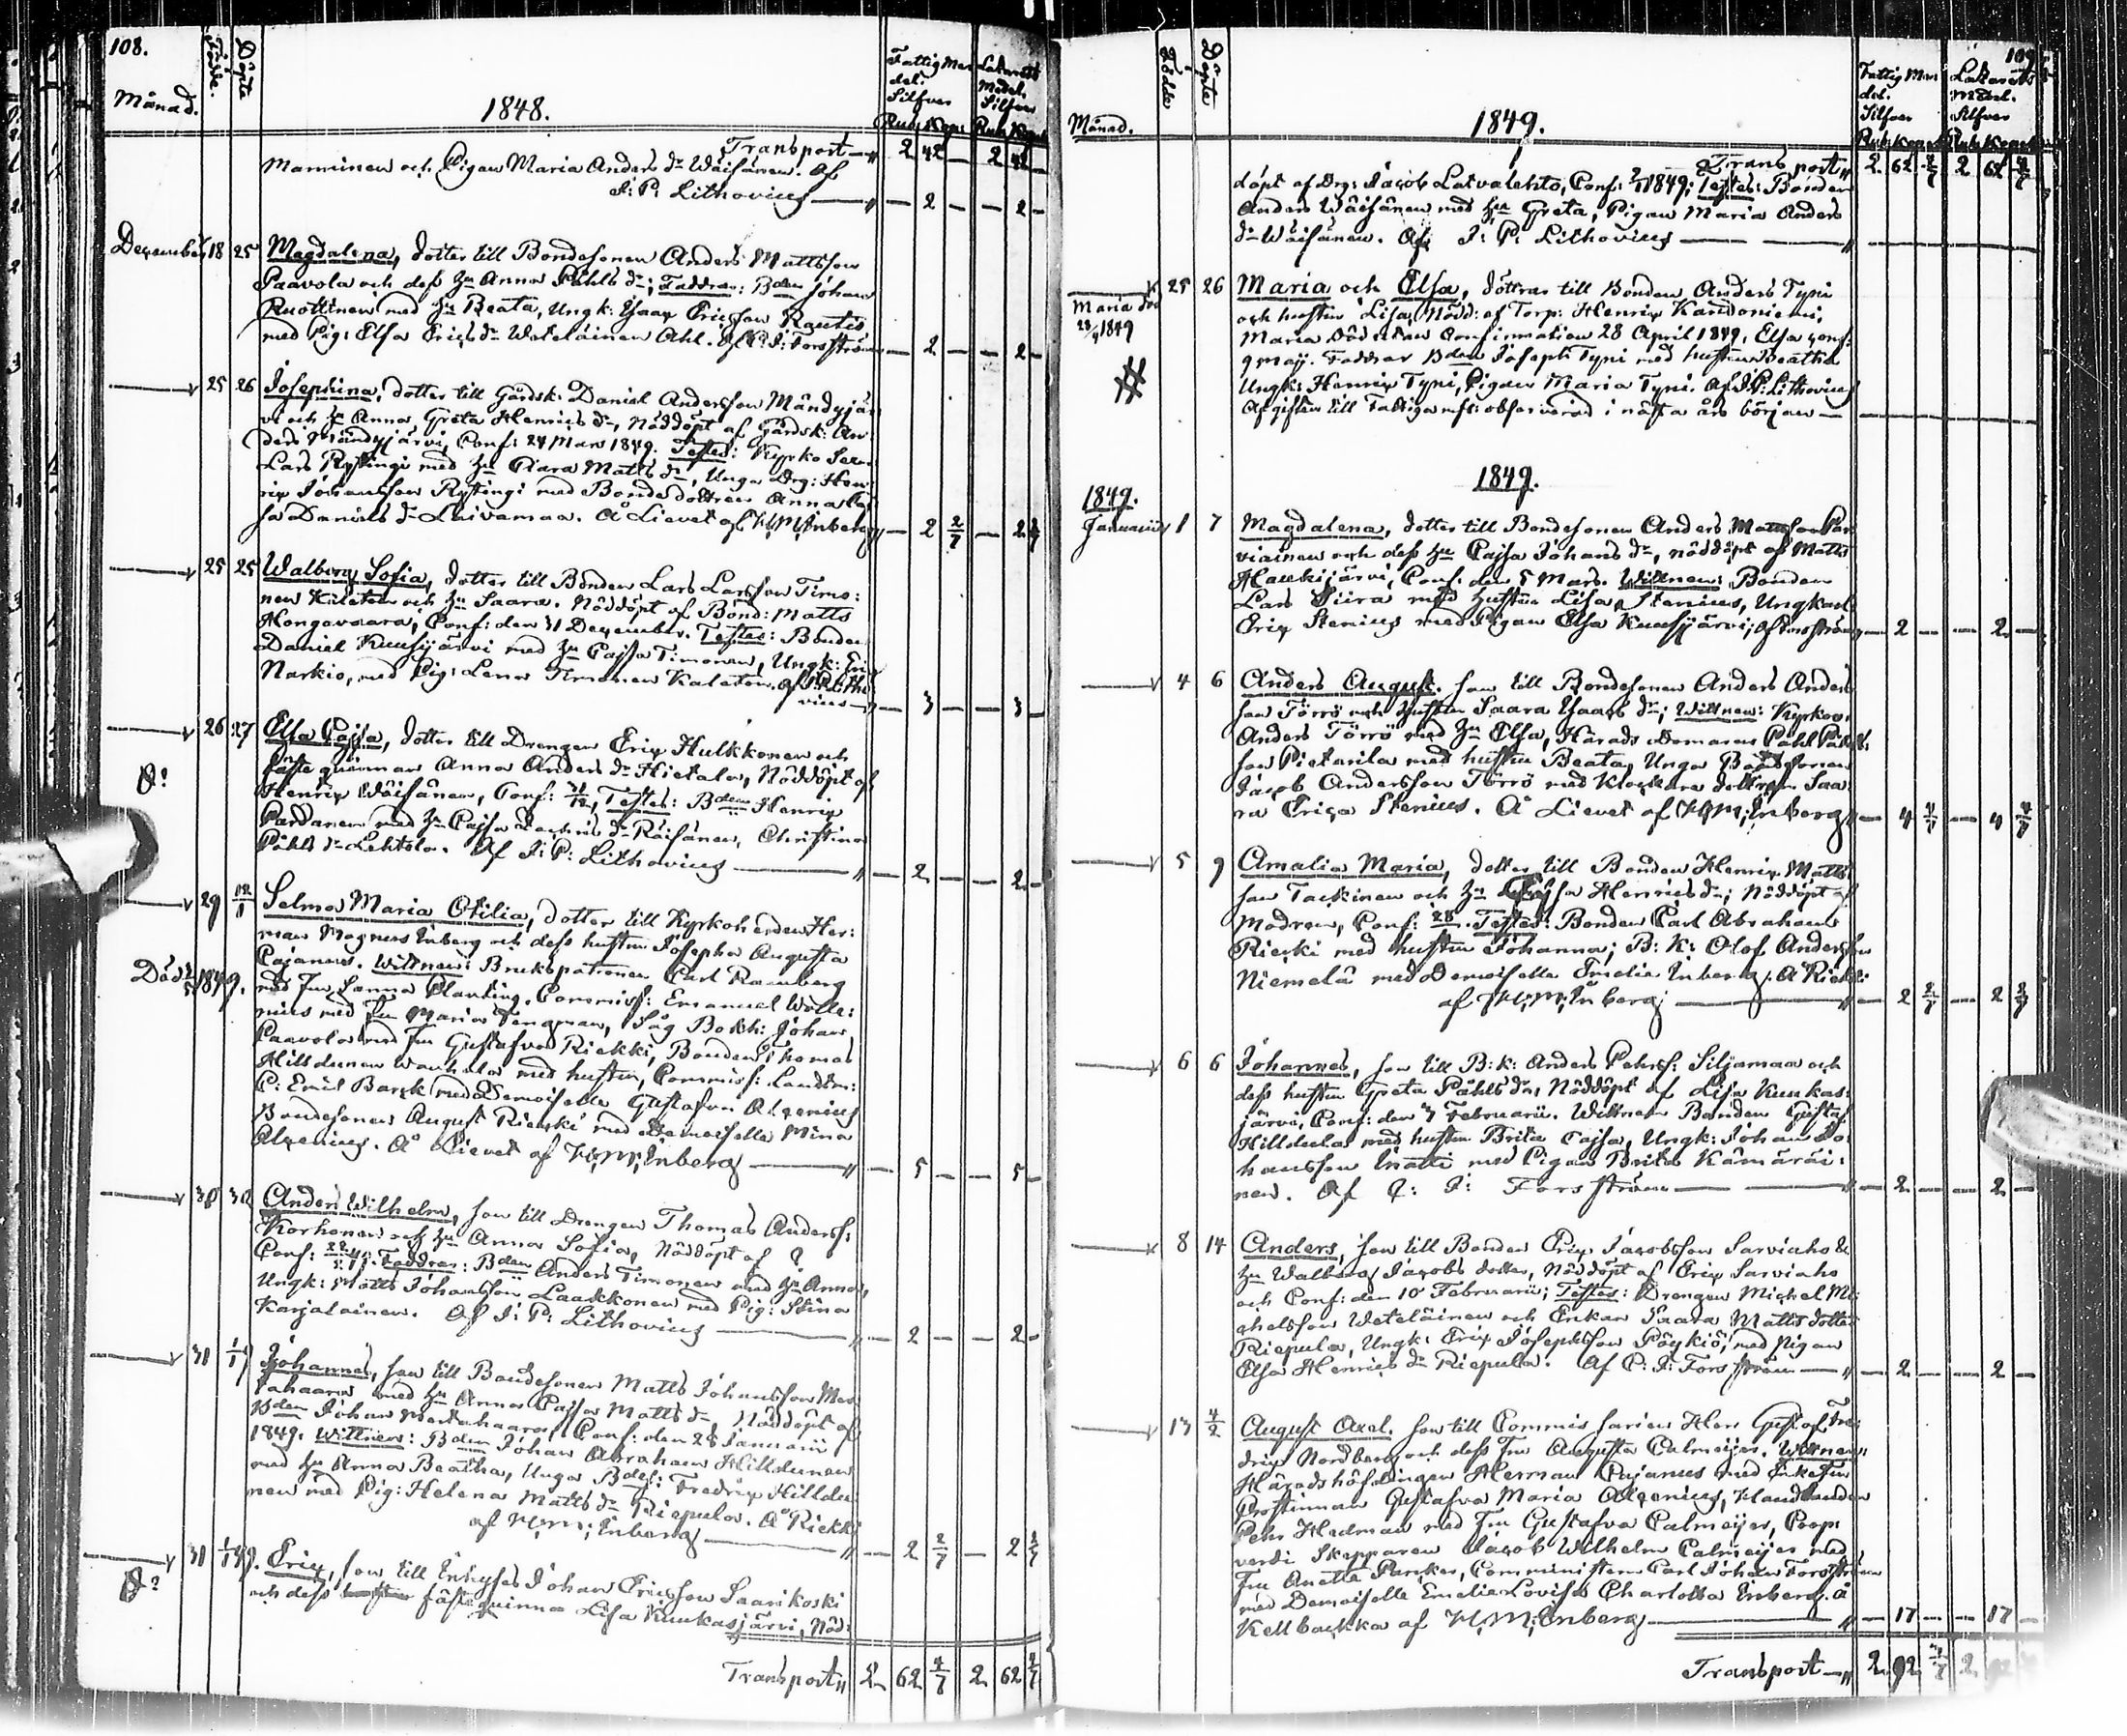 108.
Månad.
Födde.
Döpte
1848.
Fattig Me-
del.
Silfver
Rub. Kop.
Lazaretts
Medel.
Silfver
Rub. Kop.
Transport — „ 2 42 — 2 42
Manninen och Pigan Maria Anders dr Wäisänen. Af
J: P: Lithovius — „ — 2 — — 2 —
December 18 25 Magdalena, dotter till Bondesonen Anders Mattsson
Paavola och dess hu Anna Påhls dr; Faddrar: Bden Johan
Ruottinen med hu Beata, Ungk: Isaac Ericsson Rautio
med Pig: Elsa Erics dr Weteläinen Ahl. Af C: J: Forsström — 2 — — 2 —
25 26 Josephina, dotter till Gårdsk: Daniel Andersson Mändyjär-
vi och hu Anna Greta Henrics dr, Nöddöpt af Gårdsk: An-
ders Mändyjärvi, Conf: 24 Mars 1849. Testes: Kyrko
Lars Rystingi med hu Maria Matts dr, Unga Drg: Hen-
ric Johansson Rystingi med Bondedottren Anna
Daniels dr Laivamaa. Å Lievet af H: M: Enberg „ — 2 2/7 — 2 2/7
25 25 Walborg Sofia, dotter till Bonden Lars Larsson Timo:
nen Kaleton och hu Saara. Nöddöpt af Bond: Matts
Hongavaara, Conf: den 31 December. Testes: Bonden
Daniel Kuusijärvi med hu Cajsa Timonen, Ungk: Eric
Narkio, med Pig: Lena Timonen Kaleton. Af J: P: Litho-
vius — „ — 3 — — 3 —
26 27 Elsa Cajsa, dotter till Drengen Eric Hulkkonen och
fästeqvinnan Anna Anders dr Hietala, Nöddöpt af
O! Henric Wäisänen, Conf: Testes: Bden Henric
Pardanen med hu Cajsa Zachris dr Räisänen, Christina
Påhls dr Lehtola. Af J: P: Lithovius — „ — 2 — — 2 —
29 12/1 Selma Maria Otilia, dotter till Kyrkoherden Her:
man Magnus Enberg och dess hustru Josepha Augusta
Cajanus. Wittnen: Brukspatronen Carl Ramberg
Död 1849. med Fru Sanna Planting, Commiss: Emanuel Wolle:
nius med Fru Maria Tengman, Såg Bokh: Johan
Paavola med Fru Gustafva Riekki, Bonden Thomas
Hilldunen Wanhala med hustru, Commiss: Landtm:
C: Emil Barck med Demoiselle Gustafva Alcenius
Bondesonen August Riekki med Demoiselle Mina
Alcenius. Å Lievet af H: M: Enberg — „ — 5 — — 5 —
30 30 Anders Wilhelm, son till Drengen Thomas Anderss:
Korhonen och hu Anna Sofia, Nöddöpt af ?
Conf: Faddrar: Bden Anders Timonen med hu Anna,
Ungk: Matts Johansson Laakkonen med Pig: Stina
Karjalainen. Af J: P: Lithovius — „ — 2 — — 2 —
31 1/1 Johannes, son till Bondesonen Matts Johansson Mar-
tahaara med hu Anna Cajsa Matts dr, Nöddöpt af
Bden Johan Martahaara, Conf: den 28 Januarii
1849. Wittnen: Bden Johan Abraham Hilldunen
med hu Anna Beatha, Unga Bdes: Fredric Hilldu-
nen med Pig: Helena Matts dr Riepula. Å Riekki
af H: M: Enberg — „ — 2 2/7 — 2 2/7
31 1/1 49. Eric, son till Inhyses Johan Ericsson Saarikoski
O? och dess fästeqvinna Lisa Kuukasjärvi, Nöd-
Transport „ 2 62 4/7 2 62 4/7
109.
Månad.
Födde
Döpte
1849.
Fattig Me-
del.
Silfver
Rub. Kop.
Lazaretts
Medel.
Silfver
Rub. Kop.
Transport „ 2 62 4/7 2 62 4/7
döpt af Drg: Jacob Latvalehto, Conf: 1849; Testes: Bonden
Anders Wäisänen med hu Greta, Pigan Maria Anders
dr Wäisänen. Af J: P: Lithovius — „
25 26 Maria och Elsa, döttrar till Bonden Anders Tyni
Maria död
28/4 1849
och hustru Lisa, Nödd: af Torp: Henric Kardoniemi,
Maria död utan Confirmation 28 April 1849, Elsa conf:
9 maij. Faddrar Bden Joseph Tyni med hustru Beatha
# Ungk: Henric Tyni, Pigan Maria Tyni. Af J: P: Lithovius
Afgiften till Fattiga observerad i nästa års början —
1849.
1849.
Januarii 1 7 Magdalena, dotter till Bondesonen Anders Mattsson Par-
viainen och dess hu Cajsa Johans dr, nöddöpt af Matts
Haukijärvi, Conf: den 5 Mars. Wittnen: Bonden
Lars Siira med hustru Lisa Stenius, Ungkarl
Eric Stenius med Pigan Elsa Kuusijärvi; Af Forsström — 2 — — 2 —
4 6 Anders August, son till Bondesonen Anders Anders-
son Törrö och hustru Saara Isaacs dr; Wittnen: Kyrkov:
Anders Törrö med hu Elsa, Härads Domaren Påhl Påhls-
son Pietarila med hustru Beata, Unga Bondesonen
Jacob Andersson Törrö med Klockare dottren Saa-
ra Erica Stenius. Å Lievet af H: M: Enberg „ — 4 4/7 — 4 4/7
5 9 Amalia Maria, dotter till Bonden Henric Matts-
son Tackinen och hu Cajsa Henrics dr; Nöddöpt af
Modren, Conf: Testes: Bonden Carl Abraham
Riekki med hustru Johanna; B: K: Olof Andersson
Niemelä med Demoiselle Emelie Enberg. Å Riekki
af H: M: Enberg — „ — 2 2/7 — 2 2/7
6 6 Johannes, son till B: k: Anders Pehrss: Siljamaa och
dess hustru Greta Påhls dr, Nöddöpt af Lisa Kuukas-
järvi, Conf: den 7 Februarii. Wittnen Bonden Gustaf
Hilldula med hustru Brita Cajsa, Ungk: Johan Jo-
hansson Matti med Pigan Brita Kämäräi-
nen. Af C: J: Forsström — „ — 2 — — 2 —
8 14 Anders, son till Bonden Eric Jacobsson Sarviaho &
hu Walborg Jacobs dotter, Nöddöpt af Eric Sarviaho
och Conf: den 10 Februarii; Testes: Drengen Michel Mi-
chelsson Weteläinen och Enkan Saara Matts dotter
Riepula, Ungk: Eric Josephsson Pöykiö, med Pigan
Elsa Henrics dr Riepula. Af C: J: Forsström — „ — 2 — — 2 —
13 4/2 August Axel, son till Commissarien Herr Gustaf Fre-
dric Nordberg och dess Fru Augusta Calmeijer. Wittnen:
Häradshöfdingen Herman Cajanus med Enkefru
Prostinnan Gustafva Maria Alcenius, Handlanden
Pehr Hedman med Fru Gustafva Calmeijer, Coop-
verdi Skepparen Jacob Wilhelm Calmeijer med
Fru Anette Parcker, Comministern Carl Johan Forsström
med Demoiselle Emelie Lovisa Charlotta Enberg. Å
Kellbackka af H: M: Enberg — „ — 17 — — 17 —
Transport — „ 2 92 2